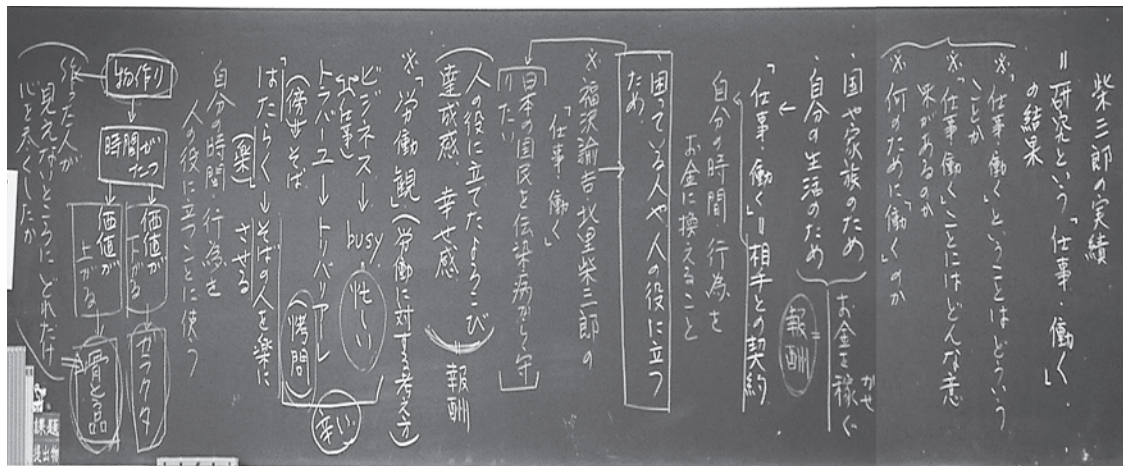 柴三郎の実績
＝研究という「仕事・働く」
の結果
※「仕事・働く」ということはどういう
ことか
※「仕事・働く」ことにはどんな意
味があるのか
※何のために「働く」のか
・国や家族のため
・自分の生活のため
お金を稼ぐ
かせ
＝
報酬
「仕事・働く」＝相手との契約
自分の時間・行為を
お金に換えること
・困っている人や人の役に立つ
ため
※福沢諭吉・北里柴三郎の
「仕事・働く」
日本の国民を伝染病から守
りたい
人の役に立てたよろこび
達成感 幸せ感
＝報酬
※「労働観」(労働に対する考え方)
ビジネス→busy・忙しい
(仕事)
トラバーユ→トリパリアーレ
(拷問)
辛い
(傍)→そば
はたらく→そばの人を楽に
(楽) させる
自分の時間・行為を
人の役に立つことに使う
物作り
時間がたつ
価値が
下がる
ガラクタ
価値が
上がる
骨とう品
作った人が
見えないところにどれだけ
心を尽くしたか
課題
提出物